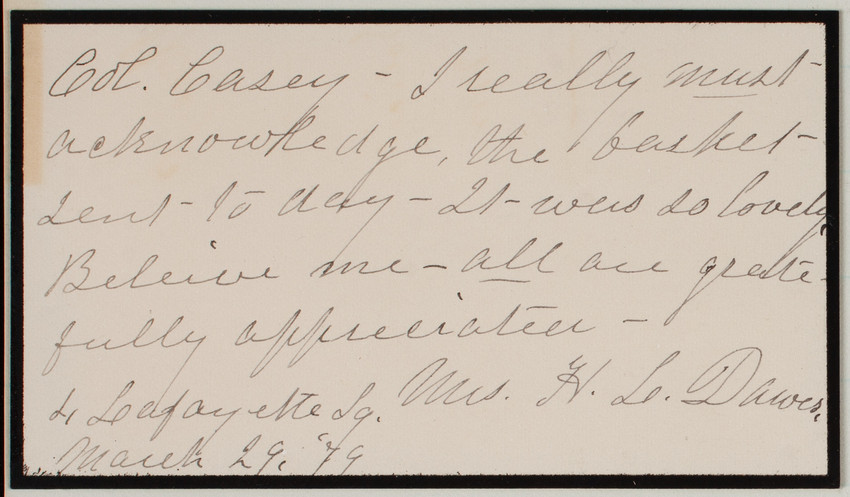 Col. Casey - I really must
acknowledge, the basket
sent to day - It was so lovely,
Beleive me - all are grate-
fully appreciated -
4 Lafayette Sq. Mrs. H. L. Dawes.
March 29, '79